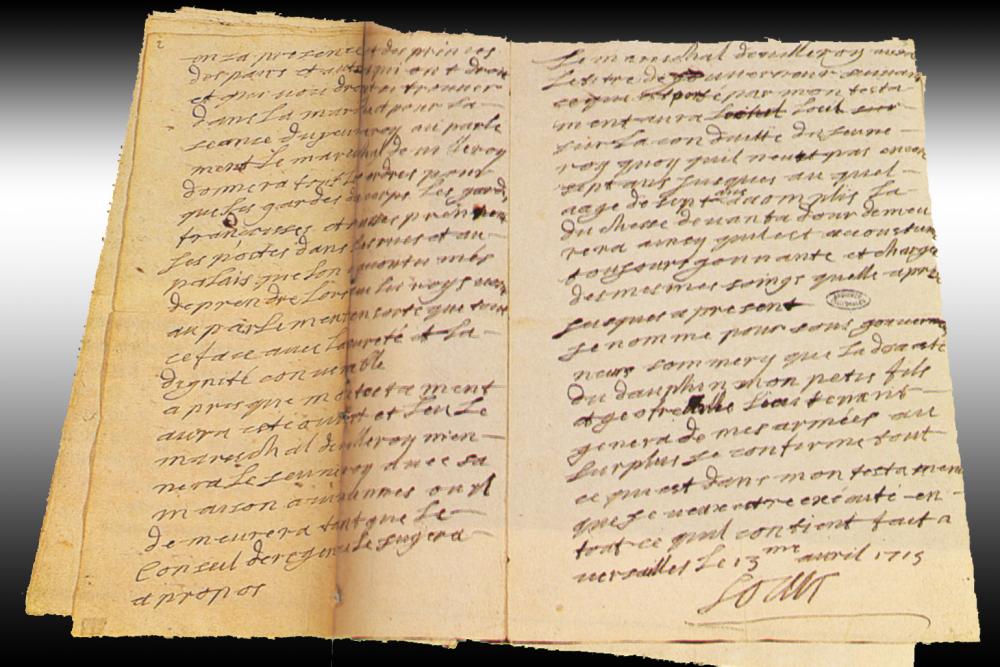 2
en la presence des princes
des pairs et autres qui ont droit
et qui voudront se trouver
dans la marche pour la
seance du jeune roy au parle
ment le mareschal de villeroy
donnera tout les ordres pour
que les gardes du corps les gardes
francoisses et suisses prennent
les postes dans les rues et au
palais que lon a acoutumés
de prendre lorsque les roys vont
au parlement en sorte que tout
ce face avec la sureté et la
dignité convenable
apres que mon testament
aura esté ouvert et leu le
mareschal de villeroy mien
nera le jeune roy avec sa
maison a vincennes ou il
demeurera tant que le
conseil de regence le jugera
a propos
le mareschal de villeroy
le titre de gouverneur suivant
ce que est porté par mon testa
ment aura l'oeil sur
sur la conduitte du jeune
roy quoy quil neust pas encore
sept ans jusques au quel
aage de sept ans acomplis la
du chesse de vantadour demeu
rera ainsy quil est accoustumé
tousjours gouvernante et chargée
des mesmes soings quelle a pris
jusques a present
je nomme pour sous gouver
neurs sommery que la desja esté
du dauphin mon petis fils
et geofreville lieutenant
general de mes armées au
surplus je confirme tout
ce qui est dans mon testament
que je veux estre executé en
tout ce quil contient fait a
versailles le 13me avril 1715
Louis